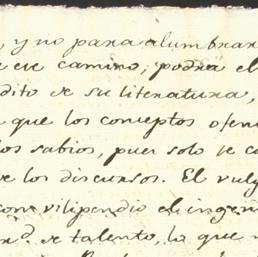 , y no para alumbrar
ese camino; podrá el
dito de su literatura,
que los conceptos ofen
os sabios, pues solo se c
e los discursos. El vulg
con vilipendio el ingen
n.d de talento, lo que